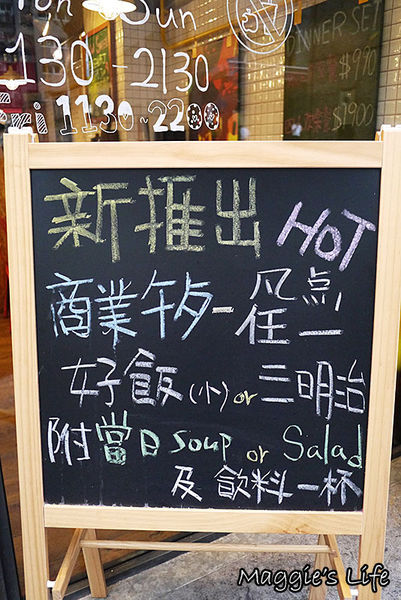 Sun
1130 - 2130
1130~2200
DINNER SET
$990
$1900
新推出 HOT
商業午歺－凡点任一
好飯(小)or三明治
附當日 soup or Salad
及飲料一杯
Maggie's Life